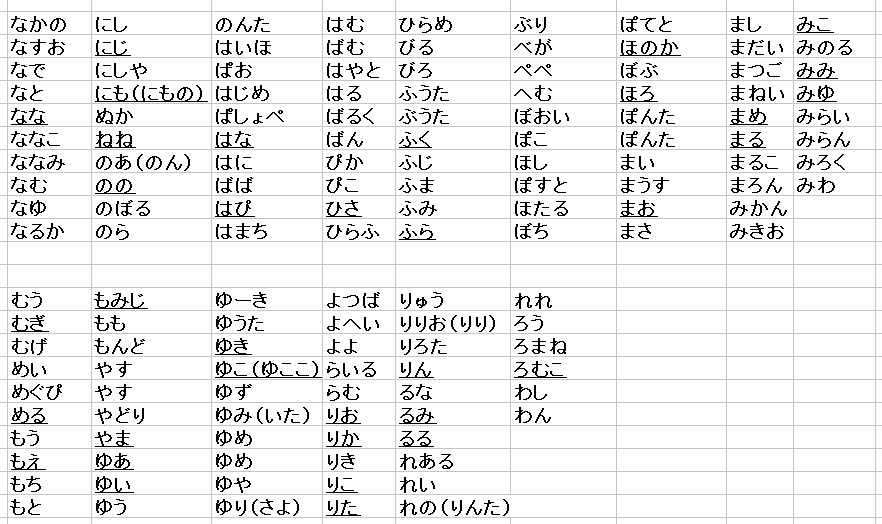 なかの にし のんた はむ ひらめ ぶり ぽてと まし みこ
なすお にじ はいほ ばむ びる べが ほのか まだい みのる
なで にしや ぱお はやと びろ ペペ ぼぶ まつご みみ
なと にも(にもの) はじめ はる ふうた へむ ほろ まねい みゆ
なな ぬか ぱしょぺ ばるく ぶうた ぼおい ぽんた まめ みらい
ななこ ねね はな ばん ふく ぽこ ぽんた まる みらん
ななみ のあ(のん) はに ぴか ふじ ほし まい まるこ みろく
なむ のの ばば ぴこ ふま ぽすと まうす まろん みわ
なゆ のぼる はぴ ひさ ふみ ほたる まお みかん
なるか のら はまち ひらふ ふら ぼち まさ みきお
むう もみじ ゆーき よつば りゅう れれ
むぎ もも ゆうた よへい りりお(りり) ろう
むげ もんど ゆき よよ りろた ろまね
めい やす ゆこ(ゆここ) らいる りん ろむこ
めぐぴ やす ゆず らむ るな わし
める やどり ゆみ(いた) りお るみ わん
もう やま ゆめ りか るる
もえ ゆあ ゆめ りき れある
もち ゆい ゆや りこ れい
もと ゆう ゆり(さよ) りた れの(りんた)